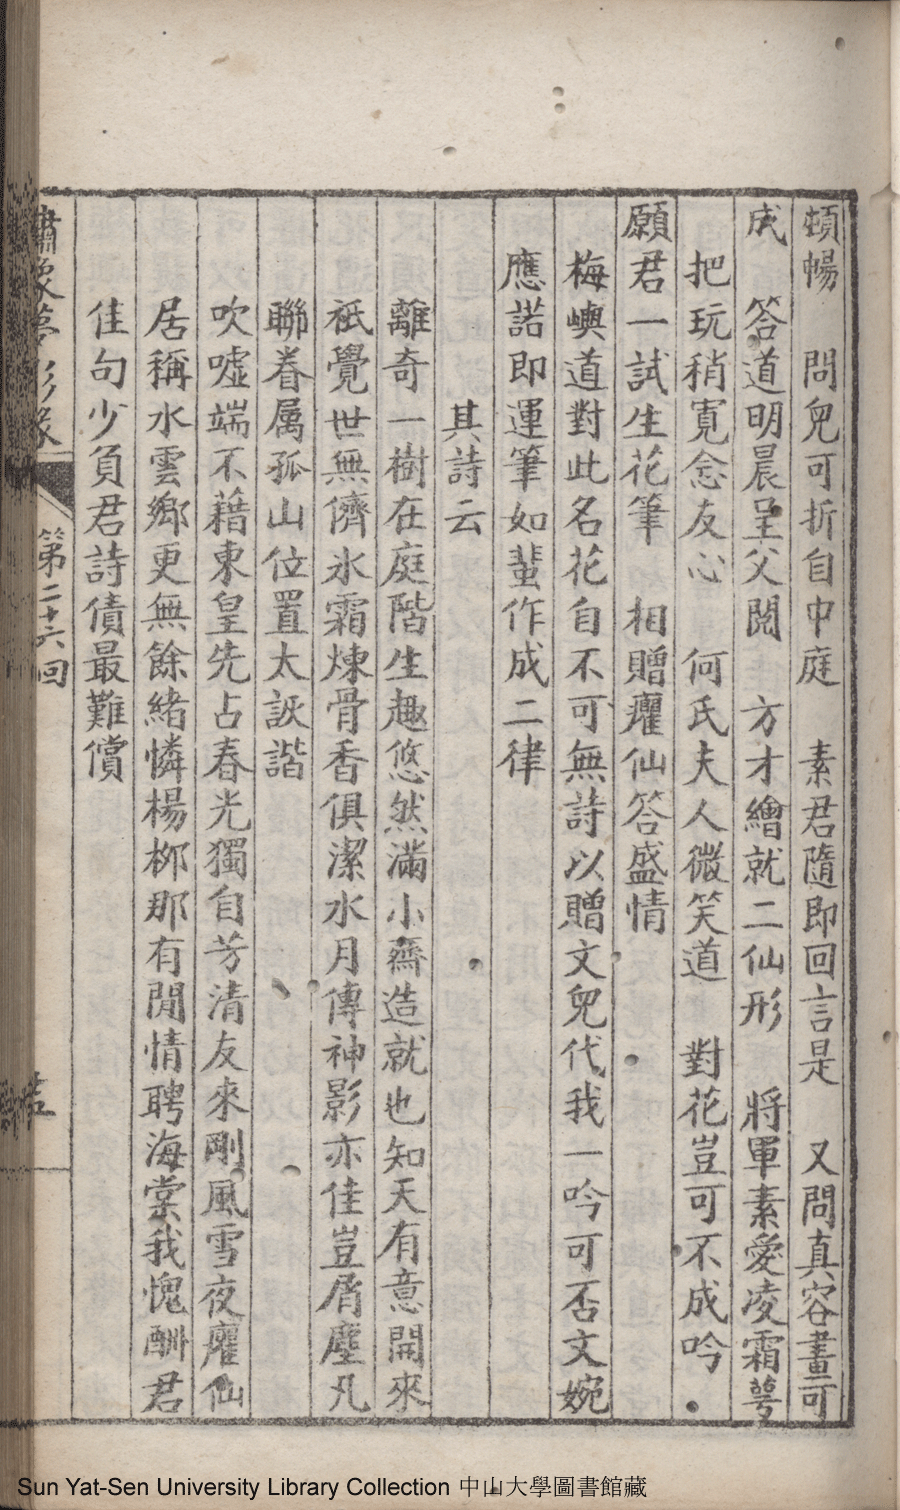 頓暢　問兒可折自中庭　素君隨即回言是　又問真容畫可
成　答道明晨呈父閱　方才繪就二仙形　將軍素愛凌霜萼
把玩稍寬念友心　何氏夫人微笑道　對花豈可不成吟
願君一試生花筆　相贈癯仙答盛情
梅嶼道對此名花自不可無詩以贈文兒代我一吟可否文婉
應諾即運筆如蜚作成二律
其詩云
離奇一樹在庭階生趣悠然滿小齋造就也知天有意開來
祇覺世無儕氷霜煉骨香俱潔水月傳神影亦佳豈屑塵凡
聯眷属孤山位置太詼諧
吹噓端不藉東皇先占春光獨自芳清友來剛風雪夜癯仙
居稱水雲鄉更無餘緒憐楊桺那有閒情聘海棠我愧酬君
佳句少負君詩債最難償
第二十六回
Sun Yat-Sen University Library Collection 中山大學圖書館藏